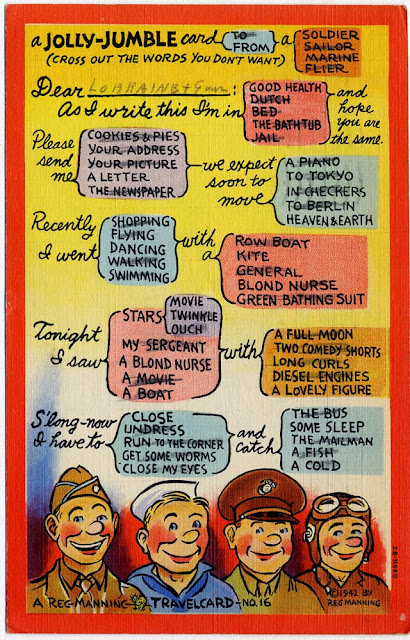 a JOLLY-JUMBLE card TO FROM a SOLDIER
SAILOR
MARINE
FLIER
(CROSS OUT THE WORDS YOU DON'T WANT)
Dear LORRAINE + Earn:
As I write this I'm in
GOOD HEALTH
DUTCH
BED
THE BATH TUB
JAIL
and hope you are the same.
Please send me
COOKIES & PIES
YOUR ADDRESS
YOUR PICTURE
A LETTER
THE NEWSPAPER
we expect soon to move
A PIANO
TO TOKYO
IN CHECKERS
TO BERLIN
HEAVEN & EARTH
Recently I went
SHOPPING
FLYING
DANCING
WALKING
SWIMMING
with a
ROW BOAT
KITE
GENERAL
BLOND NURSE
GREEN BATHING SUIT
Tonight I saw
STARS
MOVIE
TWINKLE
OUCH
MY SERGEANT
A BLOND NURSE
A MOVIE
A BOAT
with
A FULL MOON
TWO COMEDY SHORTS
LONG CURLS
DIESEL ENGINES
A LOVELY FIGURE
S'long-now I have to
CLOSE
UNDRESS
RUN TO THE CORNER
GET SOME WORMS
CLOSE MY EYES
and catch
THE BUS
SOME SLEEP
THE MAILMAN
A FISH
A COLD
A REG MANNING TRAVELCARD - NO. 16
© 1942 BY
REG MANNING
2B-H680